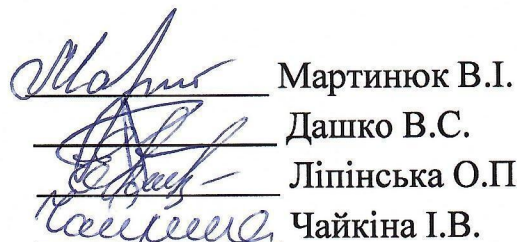 Мартинюк В.І.
Дашко В.С.
Ліпінська О.П
Чайкіна І.В.